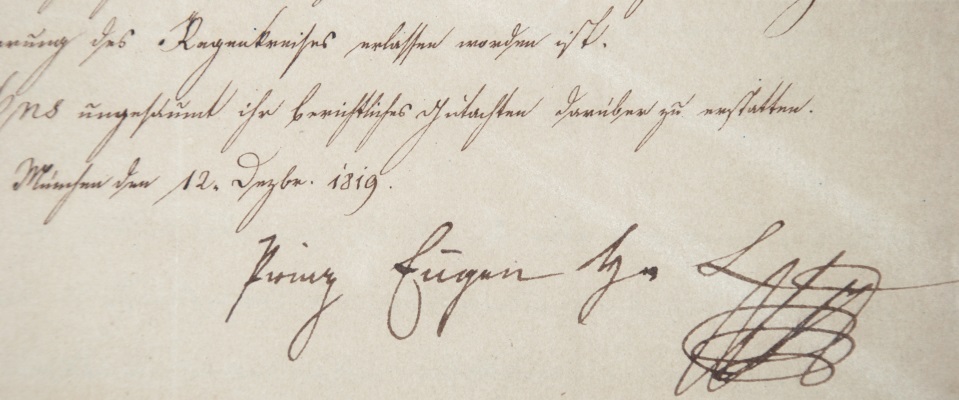 des Regenkreises erlassen worden ist.
uns ungesäumt ihr berichtliches Gutachten darüber zu erstatten.
München den 12. Dezbr. 1819.
Prinz Eugen